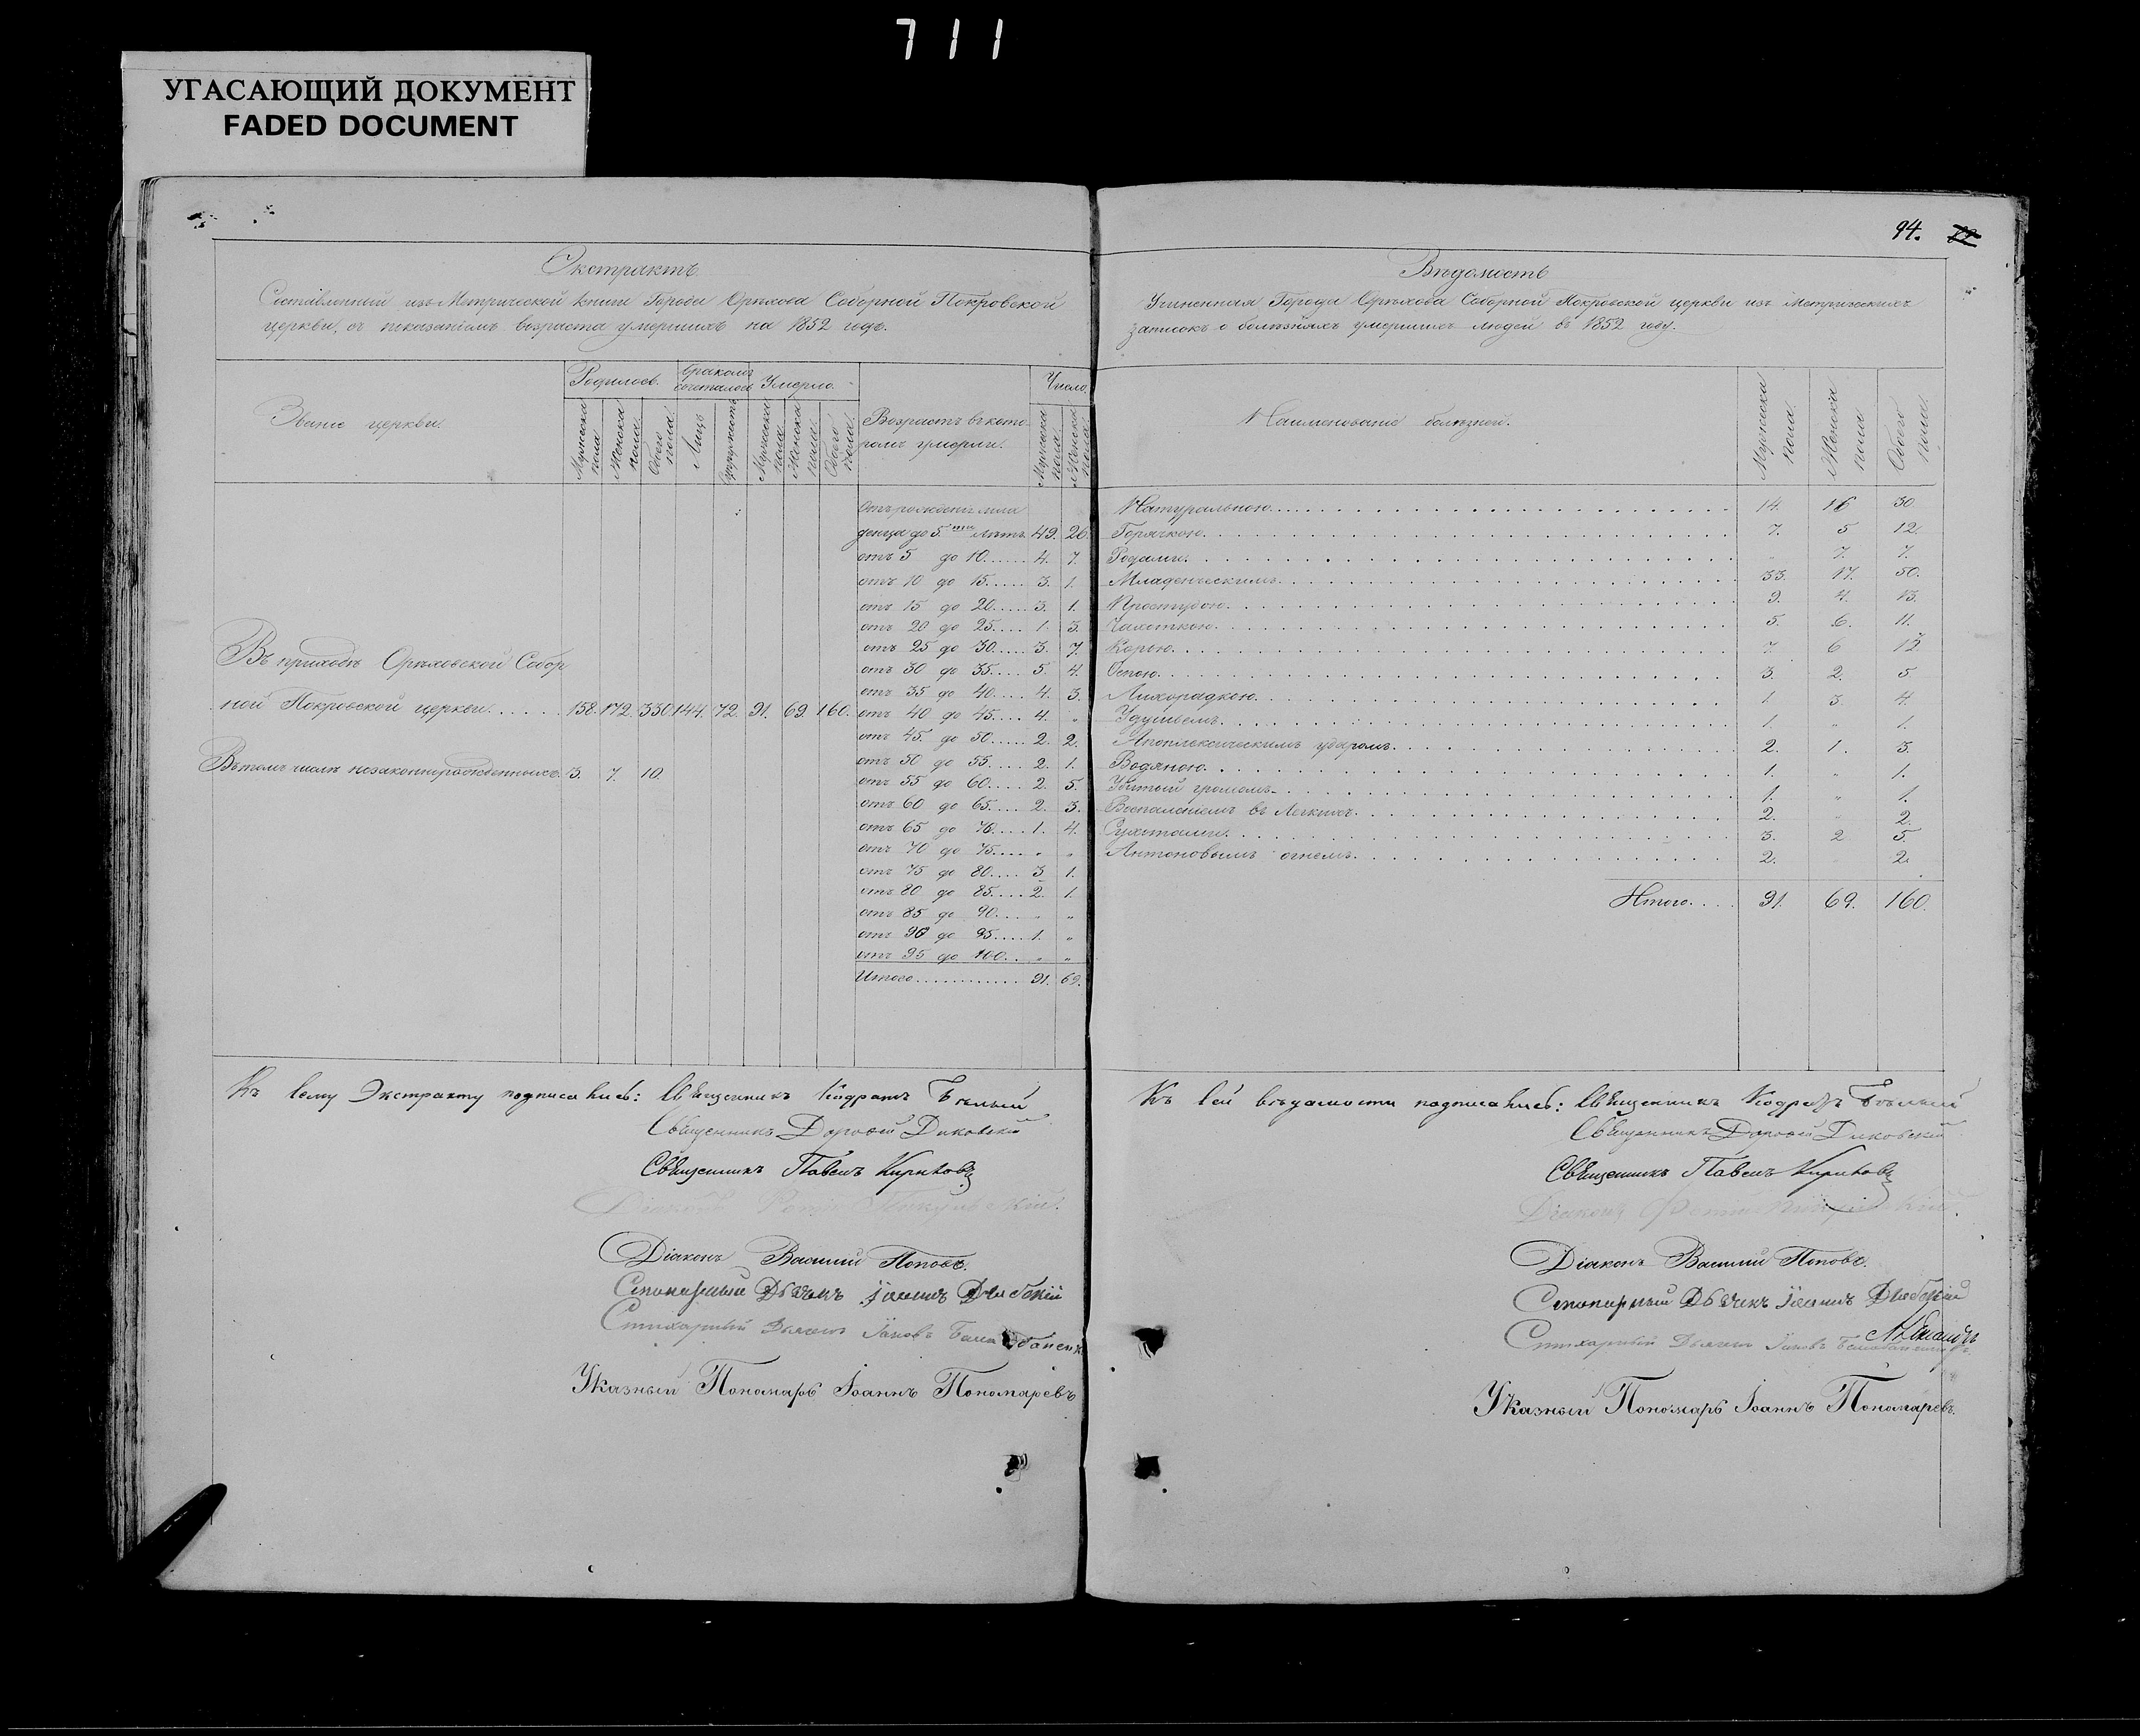 711
УГАСАЮЩИЙ ДОКУМЕНТ
FADED DOCUMENT
Экстрактъ
Составленный изъ Метрической книги Города Орѣхова Соборной Покровской
церкви, съ показаніемъ возраста умершихъ на 1852 годъ.
Званіе церкви.
Родилось.
Бракомъ сочеталось
Умерло.
Возрастъ въ кото-
ромъ умерли.
Число
Мужеска пола
Женска пола
Обоего пола
Лицъ
Супружествъ
Мужеска пола
Женска пола
Обоего пола
Мужеска пола
Женска пола
Въ приходѣ Орѣховской Собор
ной Покровской церкви..... 158. 172. 330. 144. 72. 91. 69. 160.
Въ томъ числѣ незаконнорожденныхъ. 3. 7. 10.
Отъ рожденія мла
денца до 5.ти лѣтъ. 49. 26.
отъ 5 до 10...... 4. 7.
отъ 10 до 15..... 3. 1.
отъ 15 до 20..... 3. 1.
отъ 20 до 25.... 1. 3.
отъ 25 до 30..... 3. 7.
отъ 30 до 35..... 5. 4.
отъ 35 до 40.... 4. 3.
отъ 40 до 45.... 4. „
отъ 45. до 50..... 2. 2.
отъ 50 до 55..... 2. 1.
отъ 55 до 60.... 2. 5.
отъ 60 до 65.... 2. 3.
отъ 65 до 70.... 1. 4.
отъ 70 до 75.... „ „
отъ 75 до 80.... 3. 1.
отъ 80 до 85.... 2. 1.
отъ 85 до 90.... „ „
отъ 90 до 95..... 1. „
отъ 95 до 100.. „ „
Итого............ 91. 69.
Къ сему Экстракту подписались: Священникъ Кодратъ Бѣлый
Священникъ Дорофей Диковскій
Священникъ Павелъ Кириковъ
Діаконъ
Діаконъ Василій Поповъ.
Стихарный Дьячекъ Іоаннъ
Стихарный Дьячекъ Іаковъ
Указный Пономарь Іоаннъ Пономаревъ
94.
Вѣдомость
Учиненная Города Орѣхова Соборной Покровской церкви изъ Метрическихъ
записокъ о болѣзняхъ умершихъ людей въ 1852 году.
Наименованіе болѣзней.
Мужеска пола.
Женска пола
Обоего пола.
Натуральною. 14. 16 30.
Горячкою. 7. 5 12.
Родами. „ 7. 7.
Младенческимъ. 33. 17. 50.
Простудою. 9. 4. 13.
Чахоткою. 5. 6. 11.
Корью. 7. 6 13
Оспою. 3. 2. 5
Лихорадкою. 1. 3. 4.
Удушьемъ. 1. „ 1.
Апоплексическимъ ударомъ. 2. 1. 3.
Водяною. 1. „ 1.
Убитый громомъ. 1. „ 1.
Воспаленіемъ въ Легкихъ. 2. „ 2.
Сухотами. 3. 2 5.
Антоновымъ огнемъ. 2. 2.
Итого.... 91. 69. 160.
Къ сей вѣдомости подписались: Священникъ Кодратъ Бѣлый
Священникъ Дорофей Диковскій
Священникъ Павелъ Кириковъ
Діаконъ
Діаконъ Василій Поповъ.
Стихарный Дьячекъ Іоаннъ
Стихарный Дьячекъ Іаковъ
Указный Пономарь Іоаннъ Пономаревъ.